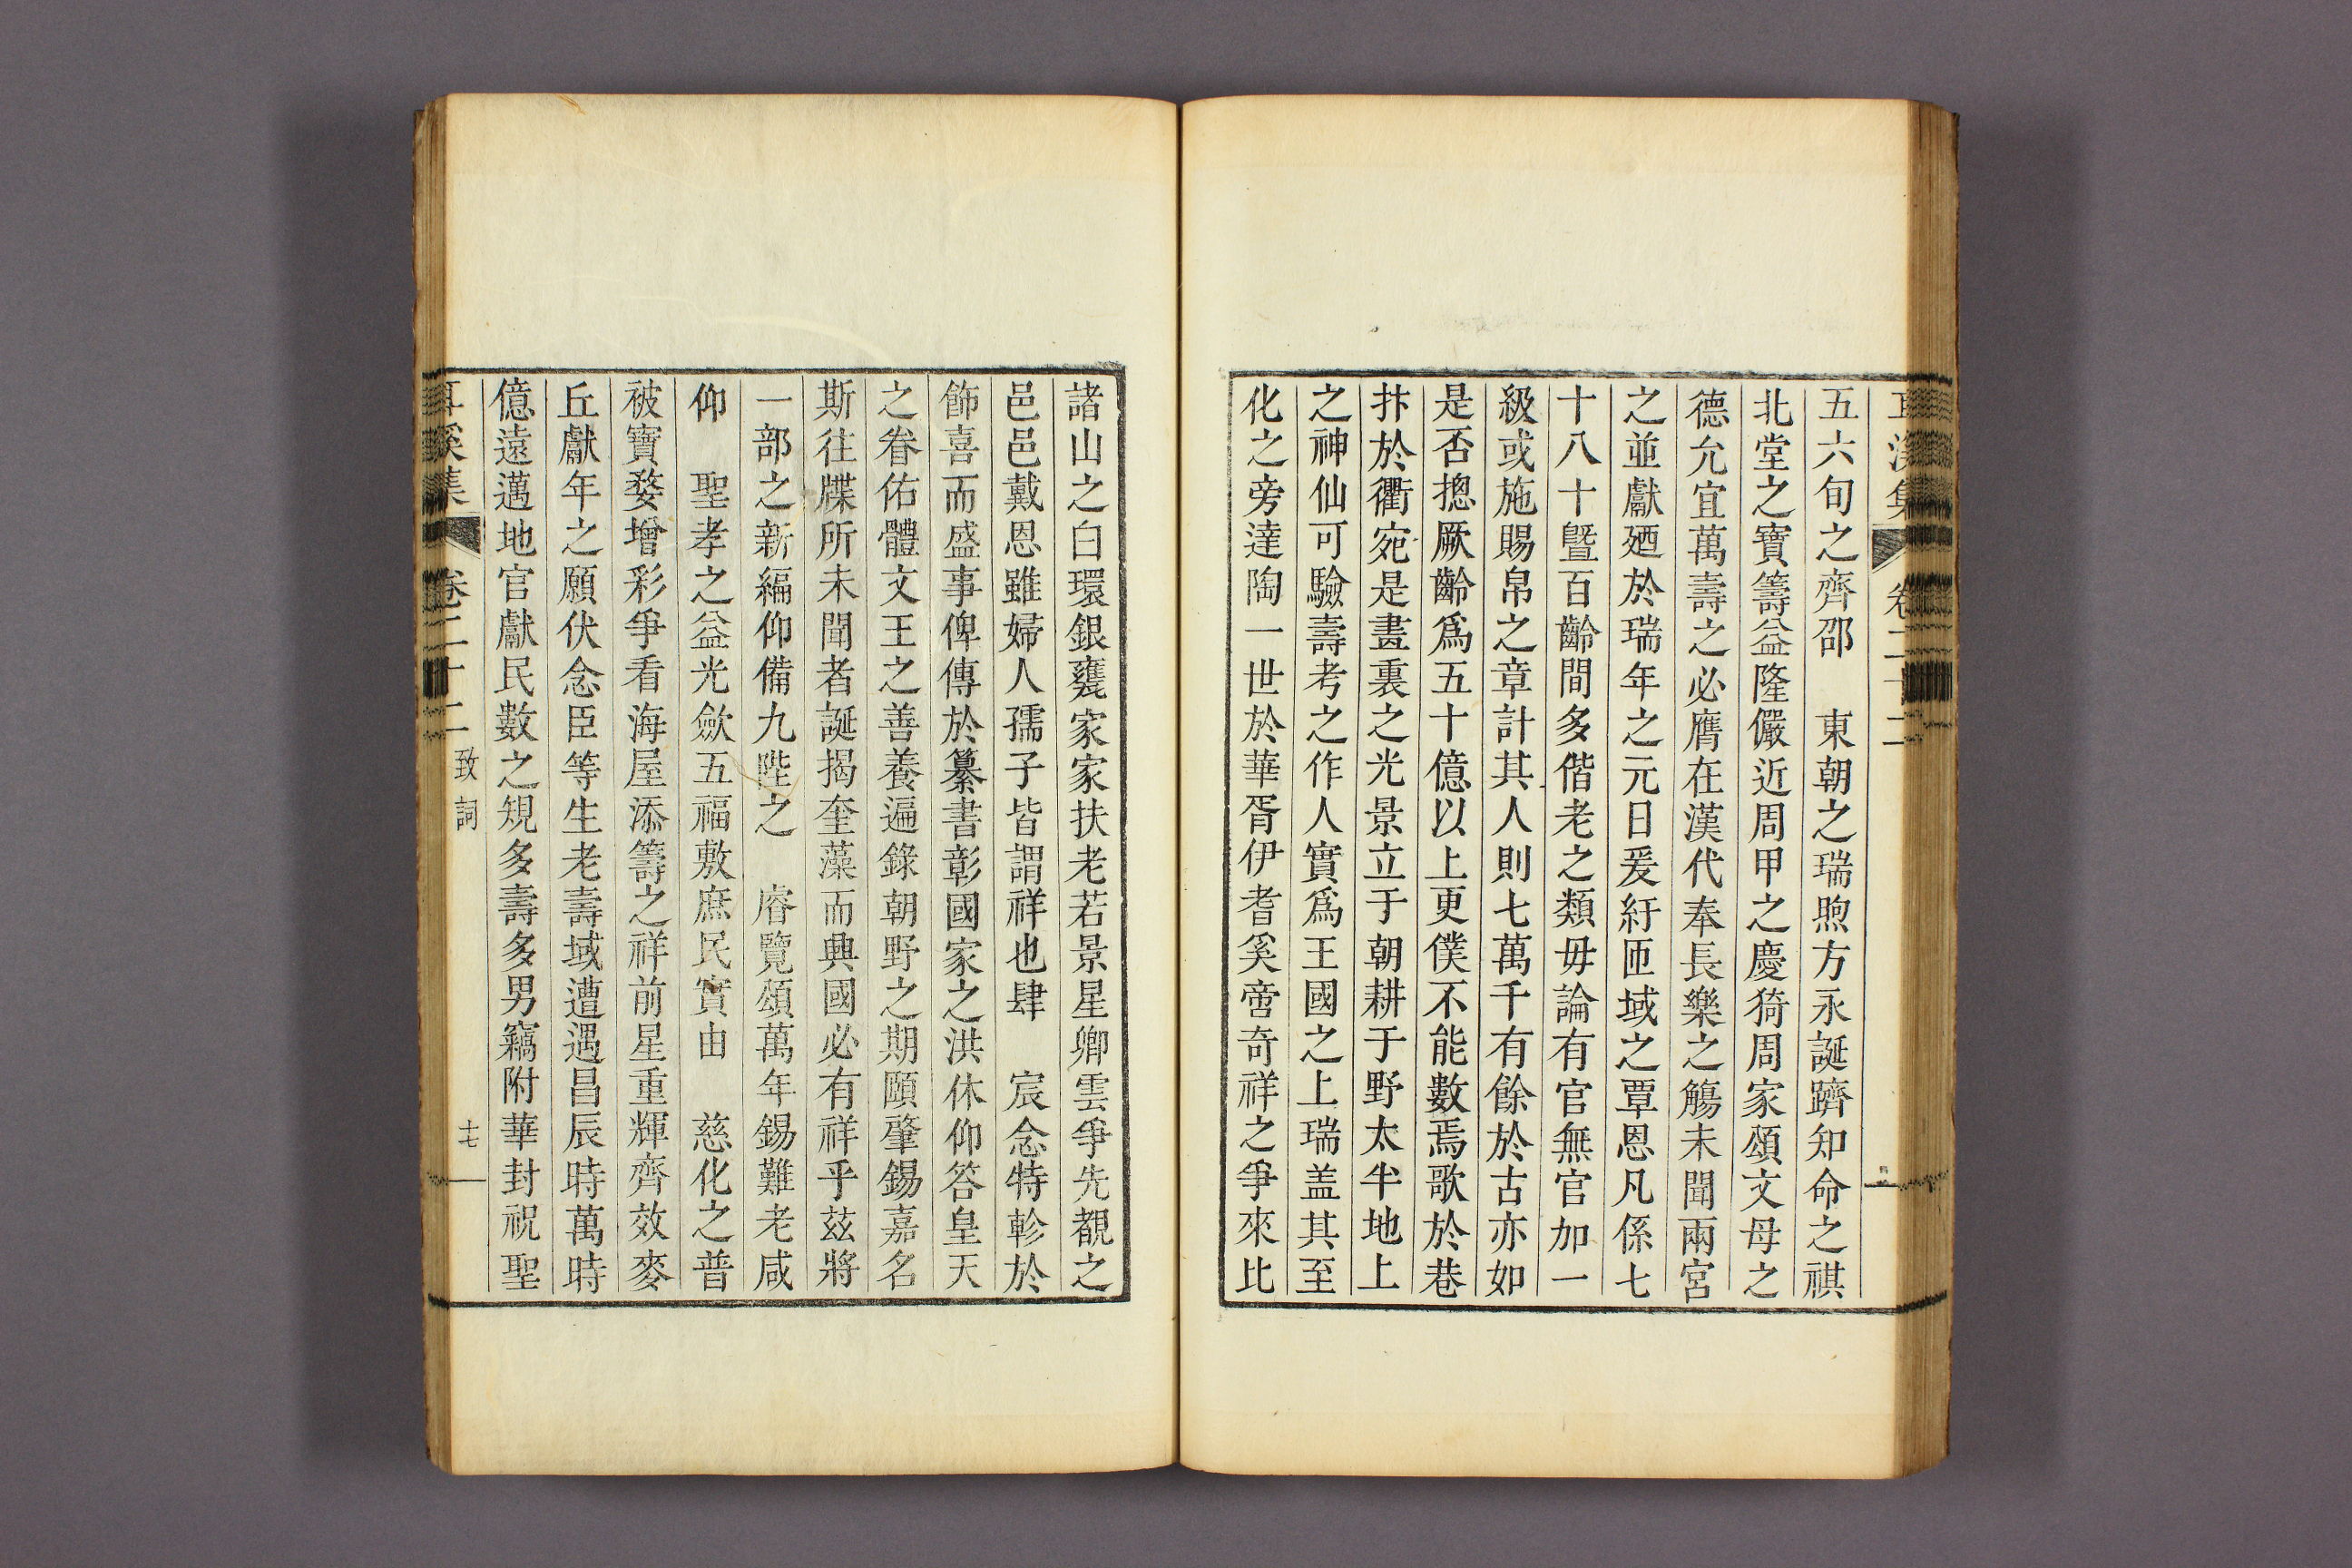 五六旬之齊邵　東朝之瑞煦方永誕躋知命之祺
北堂之寶籌益隆儼近周甲之慶猗周家頌文母之
德允宜萬壽之必膺在漢代奉長樂之觴未聞兩宮
之並獻廼於瑞年之元日爰紆匝域之覃恩凡係七
十八十曁百齡間多偕老之類毋論有官無官加一
級或施賜帛之章計其人則七萬千有餘於古亦如
是否摠厥齡爲五十億以上更僕不能數焉歌於巷
抃於衢宛是畫裏之光景立于朝耕于野太半地上
之神仙可驗壽考之作人實爲王國之上瑞盖其至
化之旁達陶一世於華胥伊耆奚啻奇祥之爭來比
諸山之白環銀甕家家扶老若景星卿雲爭先覩之
邑邑戴恩雖婦人孺子皆謂祥也肆　宸念特軫於
飾喜而盛事俾傳於纂書彰國家之洪休仰答皇天
之眷佑體文王之善養遍錄朝野之期頤肇錫嘉名
斯往牒所未聞者誕揭奎藻而興國必有祥乎茲將
一部之新編仰備九陛之　睿覽頌萬年錫難老咸
仰　聖孝之益光斂五福敷庶民實由　慈化之普
被寶婺增彩爭看海屋添籌之祥前星重輝齊效麥
丘獻年之願伏念臣等生老壽域遭遇昌辰時萬時
億遠邁地官獻民數之規多壽多男竊附華封祝聖
耳溪集　卷二十二　致詞　十七